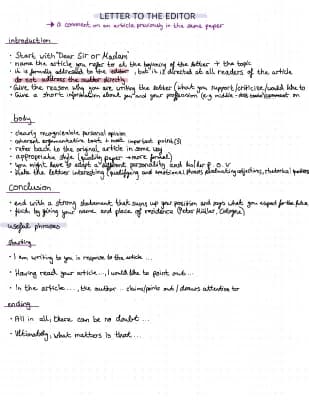 LETTER TO THE EDITOR
→ a comment on an article previously in the same paper
introduction
• Start with "Dear Sir or Madam"
• name the article you refer to at the beginning of the letter + the topic
• it is formally addressed to the editor, but it is directed at all readers of the article
do not address the author directly
• Give the reason why you are writing the letter (what you support/criticize/would like to
• Give a short information about you and your profession (e.g. middle-
body
• clearly recognizable personal opinion
• coherent argumentative text: most important point(s)
• refer back to the original article in some way
• appropriate style (quality paper → more formal)
• you might have to adapt a different personality and his/her P.O.V
• Make the letter interesting (qualifying and emotional phrases, evaluating adjectives, rhetorical
conclusion
• end with a strong statement that sums up your position and says what you expect for the future
• finish by giving your name and place of residence (Peter Müller, Cologne)
useful phrases
starting
• I am writing to you in response to the article ...
• Having read your article..., I would like to point out...
• In the article..., the author .. claims/points out / draws attention to
ending
• All in all, there can be no doubt ...
• Ultimately, what matters is that....